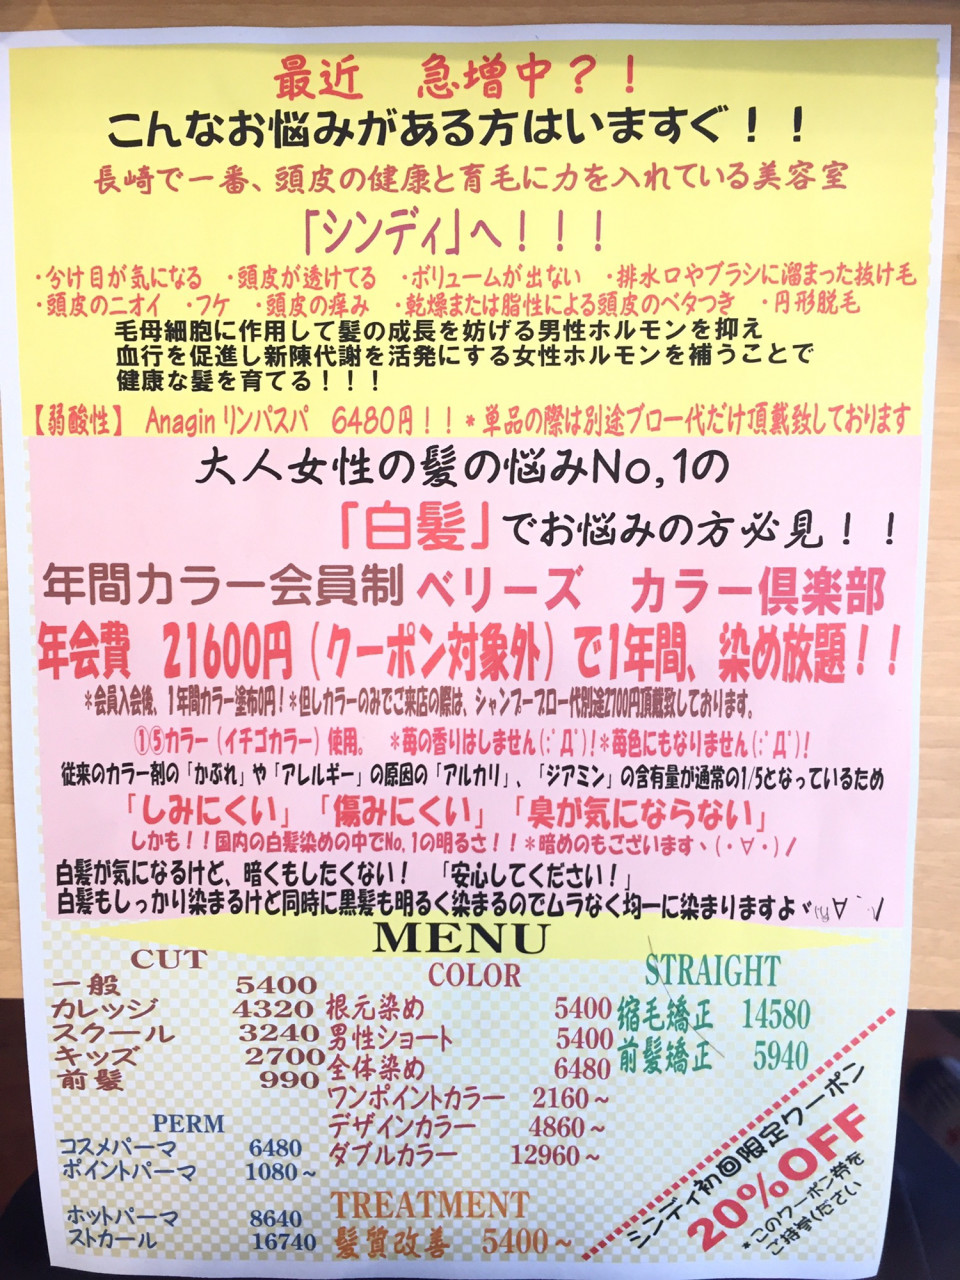 最近　急増中？！
こんなお悩みがある方はいますぐ！！
長崎で一番、頭皮の健康と育毛に力を入れている美容室
「シンディ」へ！！！
・分け目が気になる　・頭皮が透けてる　・ボリュームが出ない　・排水口やブラシに溜まった抜け毛
・頭皮のニオイ　・フケ　・頭皮の痒み　・乾燥または脂性による頭皮のベタつき　・円形脱毛
毛母細胞に作用して髪の成長を妨げる男性ホルモンを抑え
血行を促進し新陳代謝を活発にする女性ホルモンを補うことで
健康な髪を育てる！！！
【弱酸性】　Anagin リンパスパ　6480円！！＊単品の際は別途ブロー代だけ頂戴致しております
大人女性の髪の悩みNo,1の
「白髪」でお悩みの方必見！！
年間カラー会員制 ベリーズ　カラー倶楽部
年会費　21600円（クーポン対象外）で1年間、染め放題！！
＊会員入会後、1年間カラー塗布0円！＊但しカラーのみでご来店の際は、シャンプーブロー代別途2700円頂戴致しております。
①⑤カラー（イチゴカラー）使用。　＊苺の香りはしません(;ﾟДﾟ)！＊苺色にもなりません(;ﾟДﾟ)！
従来のカラー剤の「かぶれ」や「アレルギー」の原因の「アルカリ」、「ジアミン」の含有量が通常の1/5となっているため
「しみにくい」　「傷みにくい」　「臭が気にならない」
しかも！！国内の白髪染めの中でNo.1の明るさ！！＊暗めのもございますヽ(・∀・)ノ
白髪が気になるけど、暗くもしたくない！　「安心してください！」
白髪もしっかり染まるけど同時に黒髪も明るく染まるのでムラなく均一に染まりますよ
MENU
CUT
一般　5400
カレッジ　4320
スクール　3240
キッズ　2700
前髪　990
PERM
コスメパーマ　6480
ポイントパーマ　1080～
ホットパーマ　8640
ストカール　16740
COLOR
根元染め　5400
男性ショート　5400
全体染め　6480
ワンポイントカラー　2160～
デザインカラー　4860～
ダブルカラー　12960～
TREATMENT
髪質改善　5400～
STRAIGHT
縮毛矯正　14580
前髪矯正　5940
シンディ初回限定クーポン
20%OFF
＊このクーポン券を
ご持参ください